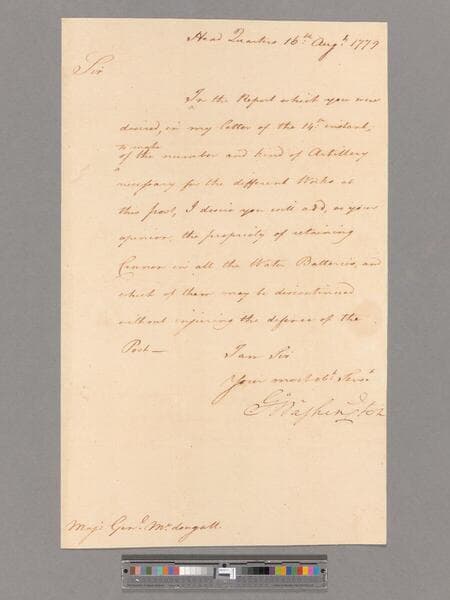 Head Quarters 16th Augt. 1779
Sir
In the Report which you were
desired, in my letter of the 14th. instant,
to make
of the number and kind of Artillery
necessary for the different Works at
this post, I desire you will add, as your
opinion, the propriety of retaining
Cannon in all the Water Batteries, and
which of them may be discontinued
without injuring the defence of the
Post—
I am Sir
Your most obt. Servt.
Go. Washington
Majr. Genl. McDougall.